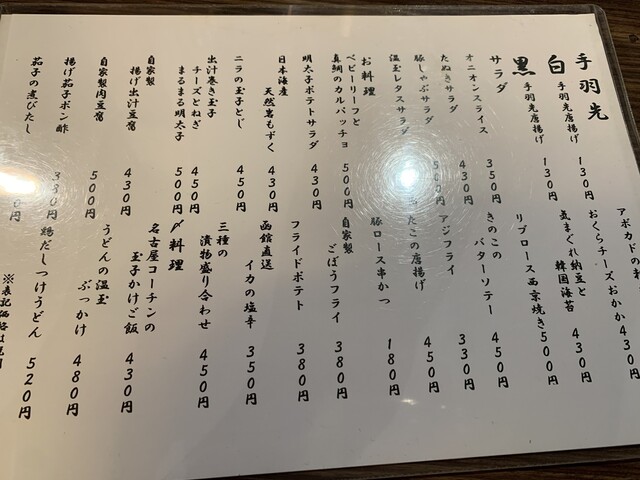 手羽先
白 手羽先唐揚げ 130円
黒 手羽先唐揚げ 130円
サラダ
オニオンスライス 350円
たぬきサラダ 430円
豚しゃぶサラダ
温玉レタスサラダ
お料理
ベビーリーフと
真鯛のカルパッチョ 500円
明太子ポテトサラダ 430円
日本海産
天然岩もずく 430円
ニラの玉子とじ 450円
出汁巻き玉子 450円
チーズとねぎ
まるまる明太子 500円
自家製
揚げ出汁豆腐 430円
自家製肉豆腐 500円
揚げ茄子ポン酢 330円
茄子の煮びたし
アボカドの
おくらチーズおかか 430円
気まぐれ納豆と
韓国海苔 430円
リブロース西京焼き 500円
きのこの
バターソテー 450円
アジフライ 330円
たこの唐揚げ 450円
豚ロース串かつ 180円
自家製
ごぼうフライ 380円
フライドポテト 380円
函館直送
イカの塩辛 350円
三種の
漬物盛り合わせ 450円
〆料理
名古屋コーチンの
玉子かけご飯 430円
うどんの温玉
ぶっかけ 480円
鶏だしつけうどん 520円
※表記価格は